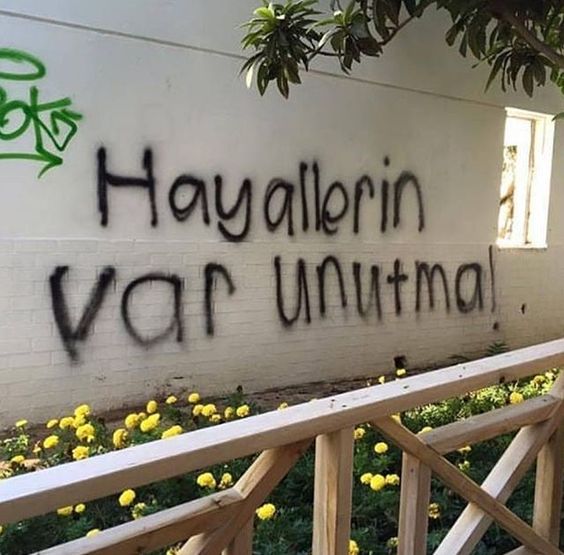 Hayallerin
var unutma!